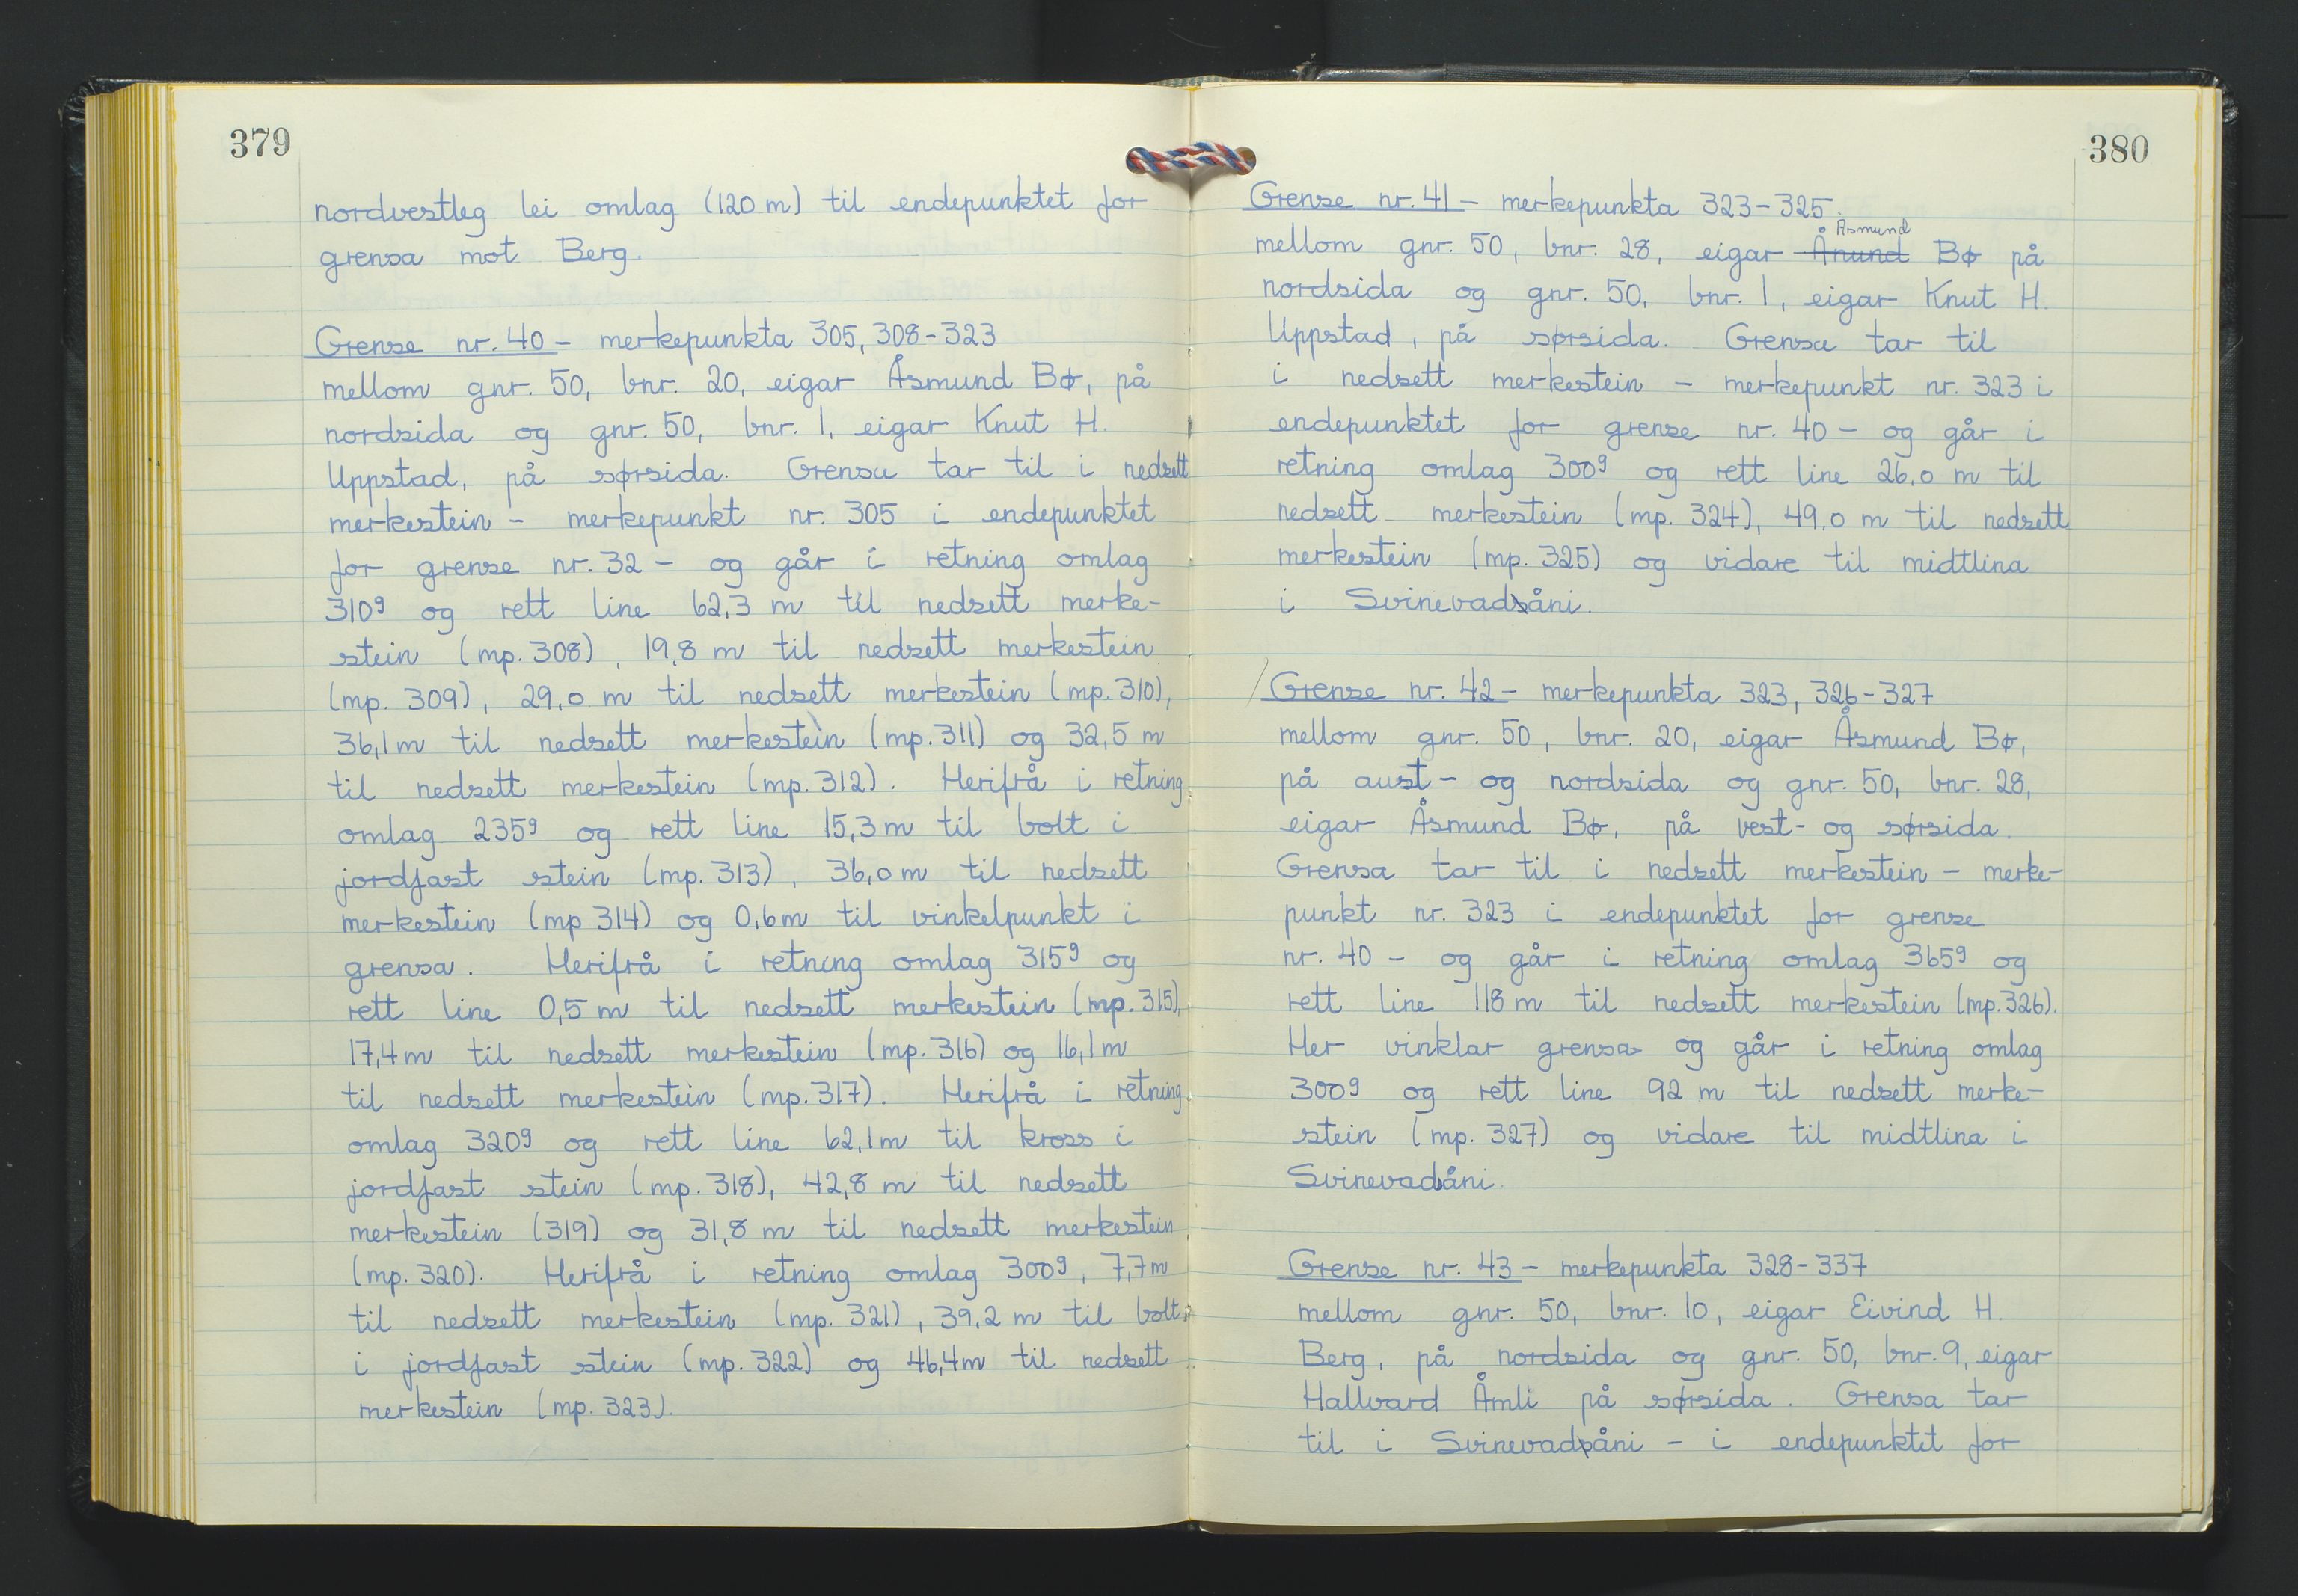 379
nordvestleg lei omlag (120 m) til endepunktet for
grensa mot Berg.
Grense nr. 40 - merkepunkta 305, 308-323
mellom gnr. 50, bnr. 20, eigar Åsmund Bø, på
nordsida og gnr. 50, bnr. 1, eigar Knut H.
Uppstad, på sørsida. Grensa tar til i nedsett
merkestein - merkepunkt nr. 305 i endepunktet
for grense nr. 32 - og går i retning omlag
310g og rett line 62,3 m til nedsett merke-
stein (mp. 308), 19,8 m til nedsett merkestein
(mp. 309), 29,0 m til nedsett merkestein (mp. 310),
36,1 m til nedsett merkestein (mp. 311) og 32,5 m
til nedsett merkestein (mp. 312). Herifrå i retning
omlag 235g og rett line 15,3 m til bolt i
jordfast stein (mp. 313), 36,0 m til nedsett
merkestein (mp 314) og 0,6 m til vinkelpunkt i
grensa. Herifrå i retning omlag 315g og
rett line 0,5 m til nedsett merkestein (mp. 315),
17,4 m til nedsett merkestein (mp. 316) og 16,1 m
til nedsett merkestein (mp. 317). Herifrå i retning
omlag 320g og rett line 62,1 m til kross i
jordfast stein (mp. 318), 42,8 m til nedsett
merkestein (319) og 31,8 m til nedsett merkestein
(mp. 320). Herifrå i retning omlag 300g, 7,7 m
til nedsett merkestein (mp. 321), 39,2 m til bolt
i jordfast stein (mp. 322) og 46,4 m til nedsett
merkestein (mp. 323).
380
Grense nr. 41 - merkepunkta 323-325.
Åsmund
mellom gnr. 50, bnr. 28, eigar Ånund Bø på
nordsida og gnr. 50, bnr. 1, eigar Knut H.
Uppstad, på sørsida. Grensa tar til
i nedsett merkestein - merkepunkt nr. 323 i
endepunktet for grense nr. 40 - og går i
retning omlag 300g og rett line 26,0 m til
nedsett merkestein (mp. 324), 49,0 m til nedsett
merkestein (mp. 325) og vidare til midtlina
i Svinevadsåni.
Grense nr. 42 - merkepunkta 323, 326-327
mellom gnr. 50, bnr. 20, eigar Åsmund Bø,
på aust- og nordsida og gnr. 50, bnr. 28,
eigar Åsmund Bø, på vest- og sørsida.
Grensa tar til i nedsett merkestein - merke-
punkt nr. 323 i endepunktet for grense
nr. 40 - og går i retning omlag 365g og
rett line 118 m til nedsett merkestein (mp. 326).
Her vinklar grensa og går i retning omlag
300g og rett line 92 m til nedsett merke-
stein (mp. 327) og vidare til midtlina i
Svinevadåni.
Grense nr. 43 - merkepunkta 328-337
mellom gnr. 50, bnr. 10, eigar Eivind H.
Berg, på nordsida og gnr. 50, bnr. 9, eigar
Hallvard Åmli på sørsida. Grensa tar
til i Svinevadsåni - i endepunktet for